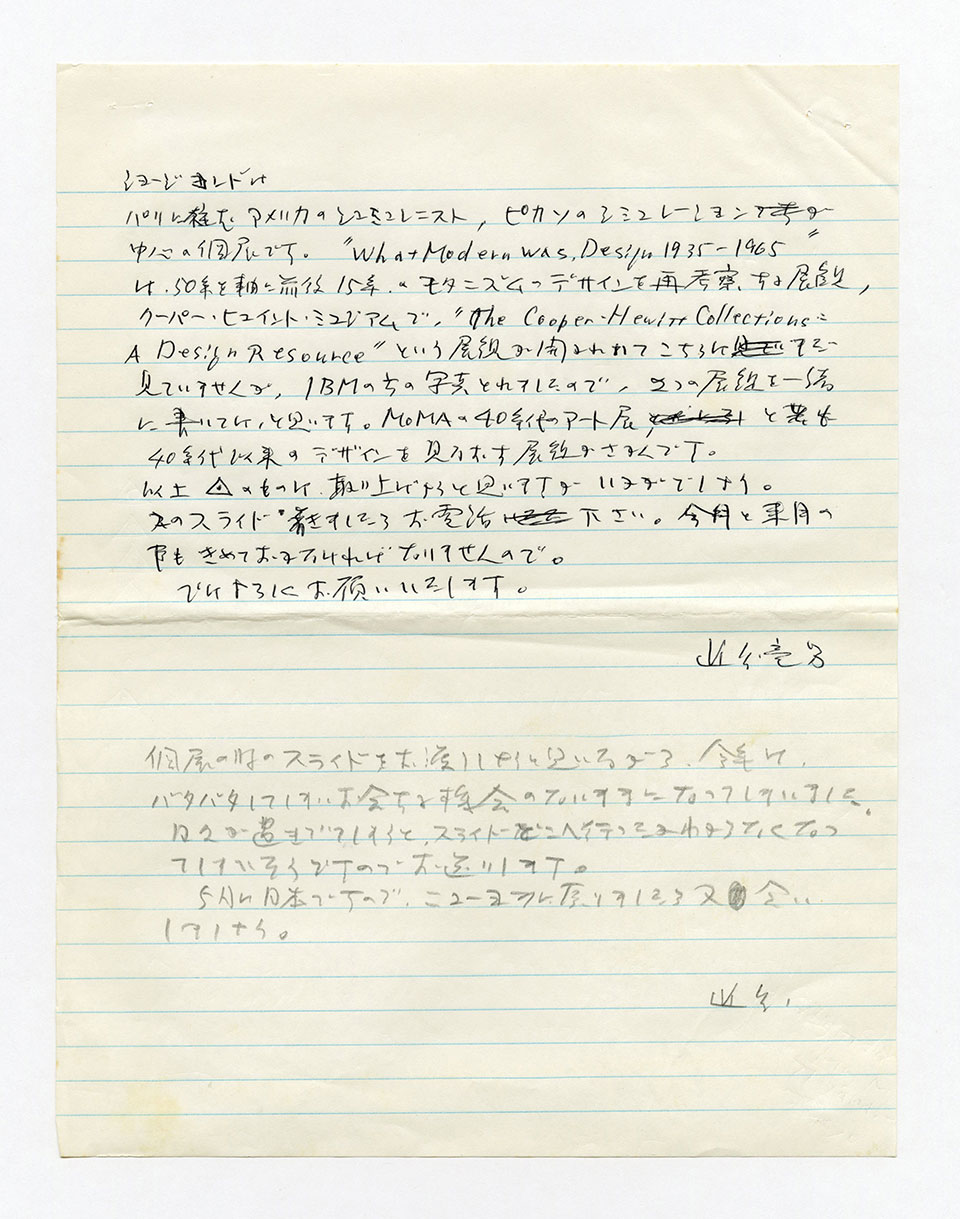 ジョージ コンドは
パリに住む アメリカのシミュレーショニスト, ピカソのシミュレーションが
中心の個展です。 "What Modern was, Design 1935-1965"
は、50年を軸に前後15年のモダニズムのデザインを再考察する展覧,
クーパー・ヒューイット・ミュージアムで、"the Cooper-Hewitt Collections:
A Design Resource" という展覧が開かれててこちらはまだ
見ていませんが, IBMの方の写真とれましたので、2つの展覧を一緒
に書いては、と思います。MoMAの40年代のアート展, と
40年代以来のデザインを見なおす展覧がさかんです。
以上 のものは、取り上げようと思いますが いかがでしょう。
スライド 着きましたら お電話 下さい。今月と来月の
もきめておかなければなりませんので。
ではよろしくお願いいたします。
個展の時のスライドをお渡ししようと思いながら、今年は、
バタバタしてしまいお会する機会のないままになってしまいました。
日々が過ぎてしまうと、スライドどこへ行ったかわからなくなっ
てしまいそうですのでお送りします。
5月は日本ですので、ニューヨークに戻りましたら又 会い
しましょう。